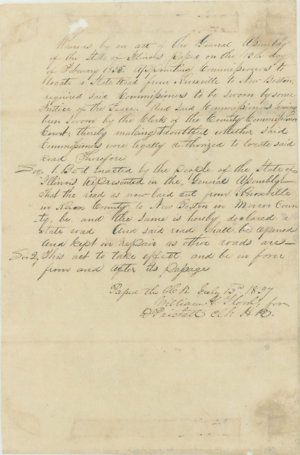 Whereas by an act of the General Assembly
of the State of Illinois passed on the 12th day
of February 1835. appointing Commissioners to
locate a State Road from Knoxville to New Boston
required said Commissioners to be sworn by some
Justice of the Peace And said Commissioners having
been sworn by the Clerk of the County Commissioners
Court, thereby making doubtful whether said
Commissioners were legally authorized to locate said
road Therefore
Sec 1 Be it Enacted by the people of the State of
Illinois Represented in the General Assembly
that the road as now laid out from Knoxville
in Knox County to New Boston in Mercer Coun
ty, be and the same is hereby declared a
State road And said road shall be opened
and kept in repair as other roads are
Sec 2, This act to take effect and be in force
from and after its passage
Passed the H. R. July 15th 1837
William H
Prickett Clk H R